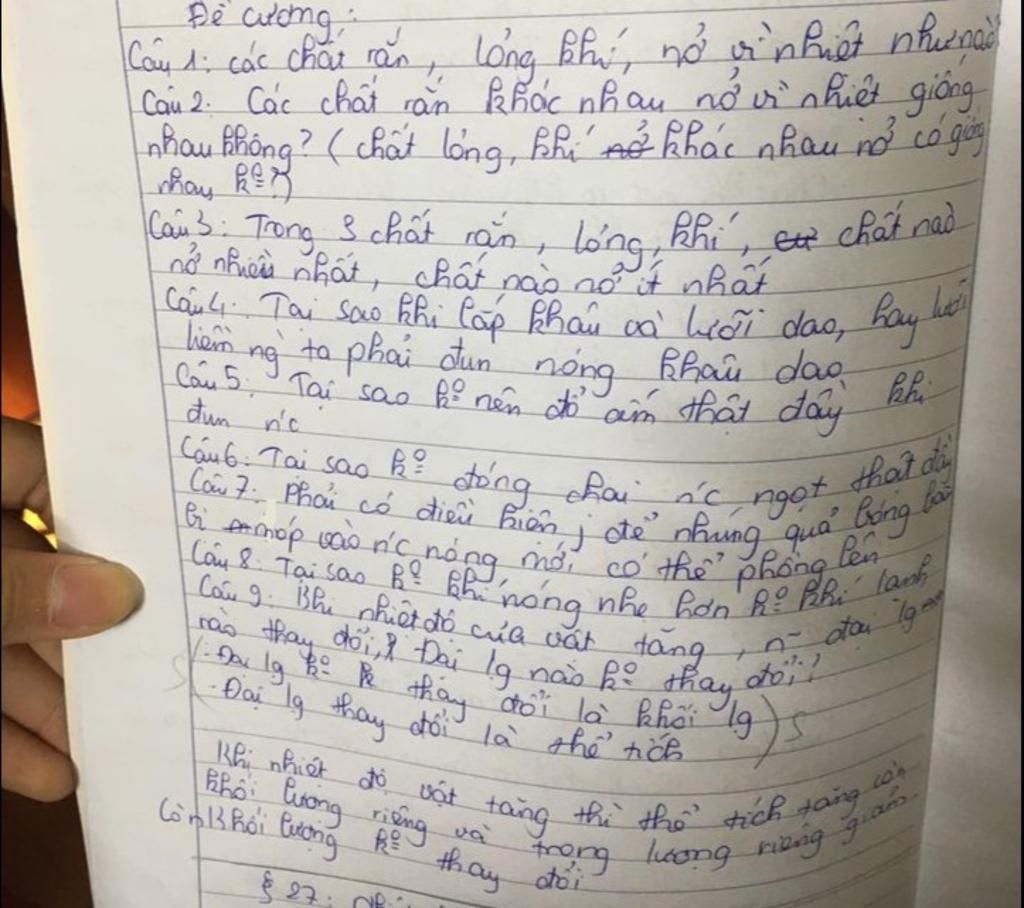 Đề cương:
Câu 1: các chất rắn, lỏng khí, nở vì nhiệt như nào
Câu 2. Các chất rắn khác nhau nở vì nhiệt giống
nhau không? (chất lỏng, khí nở khác nhau nở có giống
nhau ko?)
Câu 3: Trong 3 chất rắn, lỏng, khí, chất nào
nở nhiều nhất, chất nào nở ít nhất
Câu 4. Tại sao khi lắp khâu và lưỡi dao, hay lưỡi
liềm ng ta phải đun nóng khâu dao
Câu 5. Tại sao ko nên đổ ấm thật đầy khi
đun n'c
Câu 6: Tại sao ko đóng chai n'c ngọt thật đầy
Câu 7. Phải có điều kiện j để những quả bóng bàn
bị móp vào n'c nóng mới có thể phồng lên
Câu 8. Tại sao ko khí nóng nhẹ hơn ko khí lạnh
Câu 9. Khi nhiệt độ của vật tăng, n~ đại lg
nào thay đổi, Đại lg nào ko thay đổi?
(. Đại lg ko thay đổi là khối lg
. Đại lg thay đổi là thể tích) S
Khi nhiệt độ vật tăng thì thể tích tăng còn
khối lượng riêng và trọng lượng riêng giảm.
Còn khối lượng ko thay đổi
§ 27: